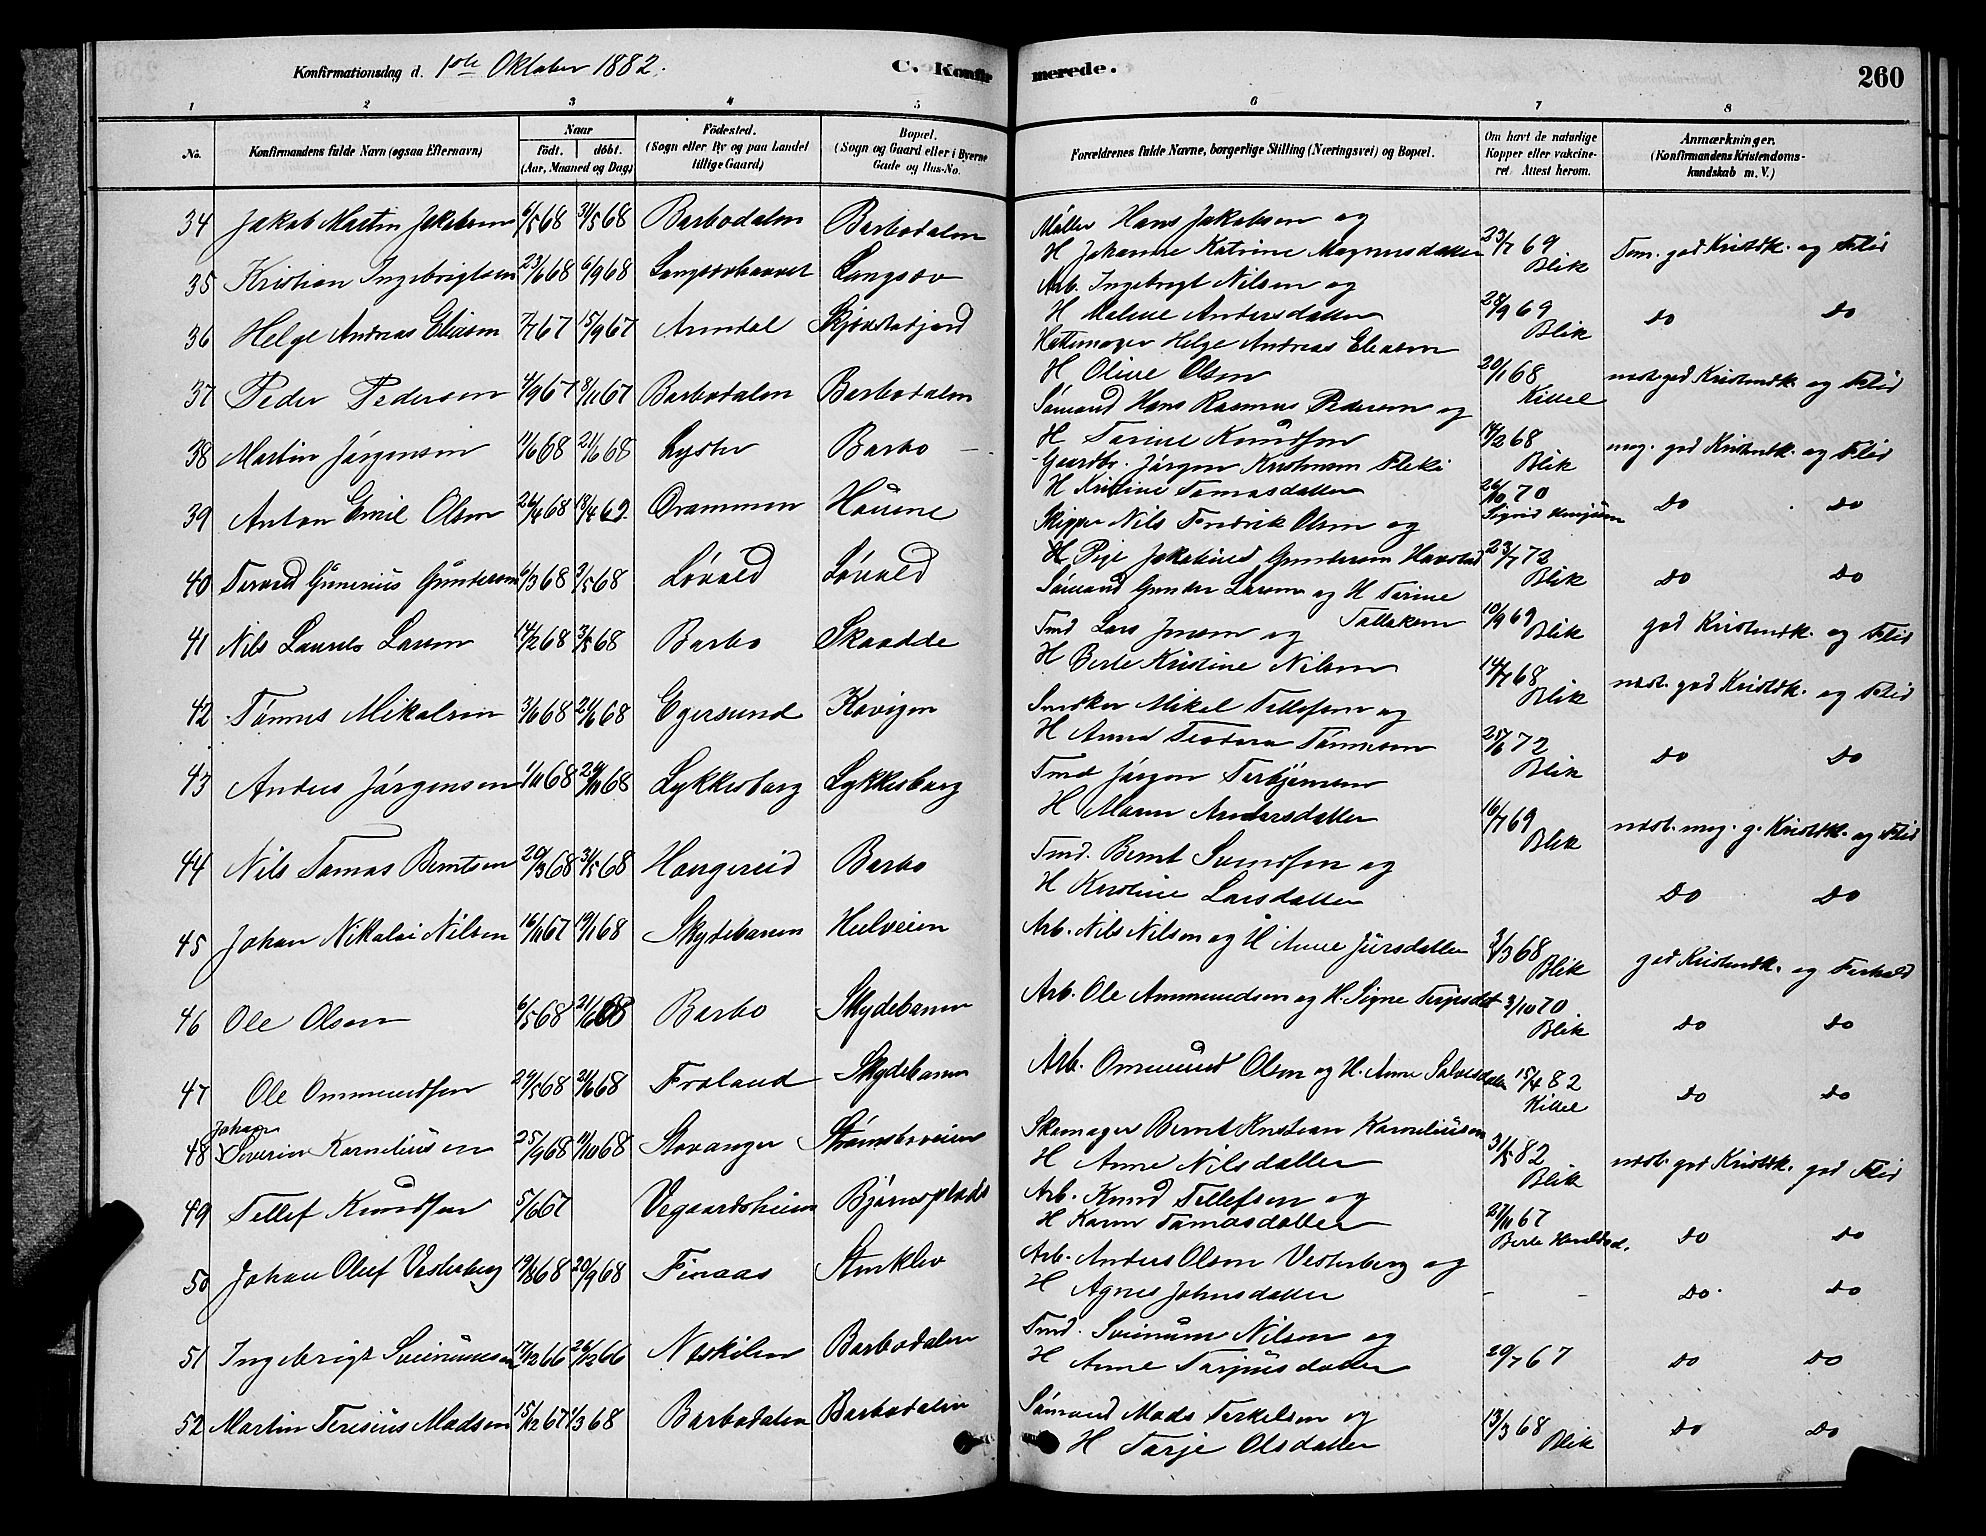 Konfirmationsdag d. 1ste Oktober 1882.
C. Konfirmerede.
260
1 2 3 4 5 6 7 8
No.
Konfirmandens fulde Navn (ogsaa Efternavn)
Naar
födt. döbt.
(Aar, Maaned og Dag)
Födested.
(Sogn eller By og paa Landet
tillige Gaard)
Bopæl.
(Sogn og Gaard eller i Byerne
Gade og Hus-No.
Forældrenes fulde Navne, borgerlige Stilling (Næringsvei) og Bopæl.
Om havt de naturlige
Kopper eller vakcine-
ret Attest herom.
Anmærkninger.
(Konfirmandens Kristendoms-
kundskab m. V.)
34 Jakob Martin Jakobsen 6/5 68 31/5 68 Barbodalen Barbodalen Møller Hans Jakobsen og
H Johanne Katrine Magnusdatter 23/7 69 Blik Tem. god Kristdk. og Flid
35 Kristian Ingebrigtsen 23/6 68 6/9 68 Langsæ Arb. Ingebrigt Nilsen og
H Malene Andersdatter 28/9 69 Blik do do
36 Helge Andreas Eliasen 7/7 67 15/9 67 Arendal Hattemager Helge Andreas Eliasen
H Oline Olsen 20/1 68 Kittel næst. god Kristendk. og Flid
37 Peder Pedersen 4/9 67 8/11 67 Barbodalen Barbodalen Sømand Hans Rasmus Pedersen og
H Tarine Knudsen 14/2 68 Blik meg. god Kristendk. og Flid
38 Martin Jørgensen 11/6 68 21/6 68 Lyster Barbo Gaardbr. Jørgen Kristensen
H Kristine Tomasdatter 26/10 70 do do
39 Anton Emil Olsen 26/4 68 Drammen Houene Skipper Nils Fredrik Olsen og
H Pige Jakobine Gundersen Havstad 23/7 72 Blik do do
40 Gunerius Gundersen 6/3 68 3/5 68 Løvold Løvold Sømand Gunder Larsen og H Tarine
Tallaksen 10/9 69 Blik god Kristendk. og Flid
41 Nils Laurits Larsen 14/2 68 3/5 68 Barbo Skaadde Tmd Lars Jensen og
H Berte Kristine Nilsen 14/7 68 Blik næst. god Kristdk. og Flid
42 Tønnes Mikalsen 3/6 68 21/6 68 Egersund Kavigen Snekker Mikal Tellefsen og
H Anna Teodora Tønnesen 25/6 72 Blik do do
43 Anders Jørgensen 1/10 68 Lykkesborg Lykkesborg Tmd Jørgen Terbjørnsen
H Maren Andersdatter 16/7 69 Blik næst. meg. g. Kristdk. og Flid
44 Nils Tomas Berntsen 20/3 68 31/5 68 Hangereid Barbo Tmd. Bernt Svendsen og
H Kristine Larsdatter do do
45 Johan Nikolai Nilsen 16/11 67 19/1 68 Skydebanen Hulveien Arb. Nils Nilsen og H Anne Jørsdatter 3/3 68 Blik god Kristendk. og Forhold
46 Ole Olsen 6/5 68 21/6 68 Barbo Skydebanen Arb. Ole Ammundsen og H. Signe Terjesdat 3/10 70 Blik do do
47 Ole Ommundsen 24/5 68 21/6 68 Froland Skydebanen Arb. Ommund Olsen og H. Anne Salvesdatter 15/4 82 Kittel do do
48 Johan Severin Korneliusen 25/9 68 11/10 68 Stavanger Strømsboveien Skomager Bernt Kristian Korneliusen
H Anne Nilsdatter 31/5 82 Blik næst. god Kristdk. god Flid
49 Tellef Knudsen 5/6 67 Vegaardsheien Bjørnsplads Arb. Knud Tellefsen og
H Karen Tomasdatter 27/11 67 do do
50 Johan Oluf Vesterberg 19/8 68 20/9 68 Finaas Stenklev Arb. Anders Olsen Vesterberg og
H Agnes Johnsdatter - - do. do
51 Ingebrigt Sveinunsen 17/12 66 26/12 66 Neskilen Barbodalen Tmd. Sveinum Nilsen og
H Anne Tarjusdatter 20/7 67 do do
52 Martin Teresius Madsen 15/12 67 1/3 68 Barbodalen Barbodalen Sømand Mads Terkelsen og
H Tarje Olsdatter 13/3 68 Blik do do